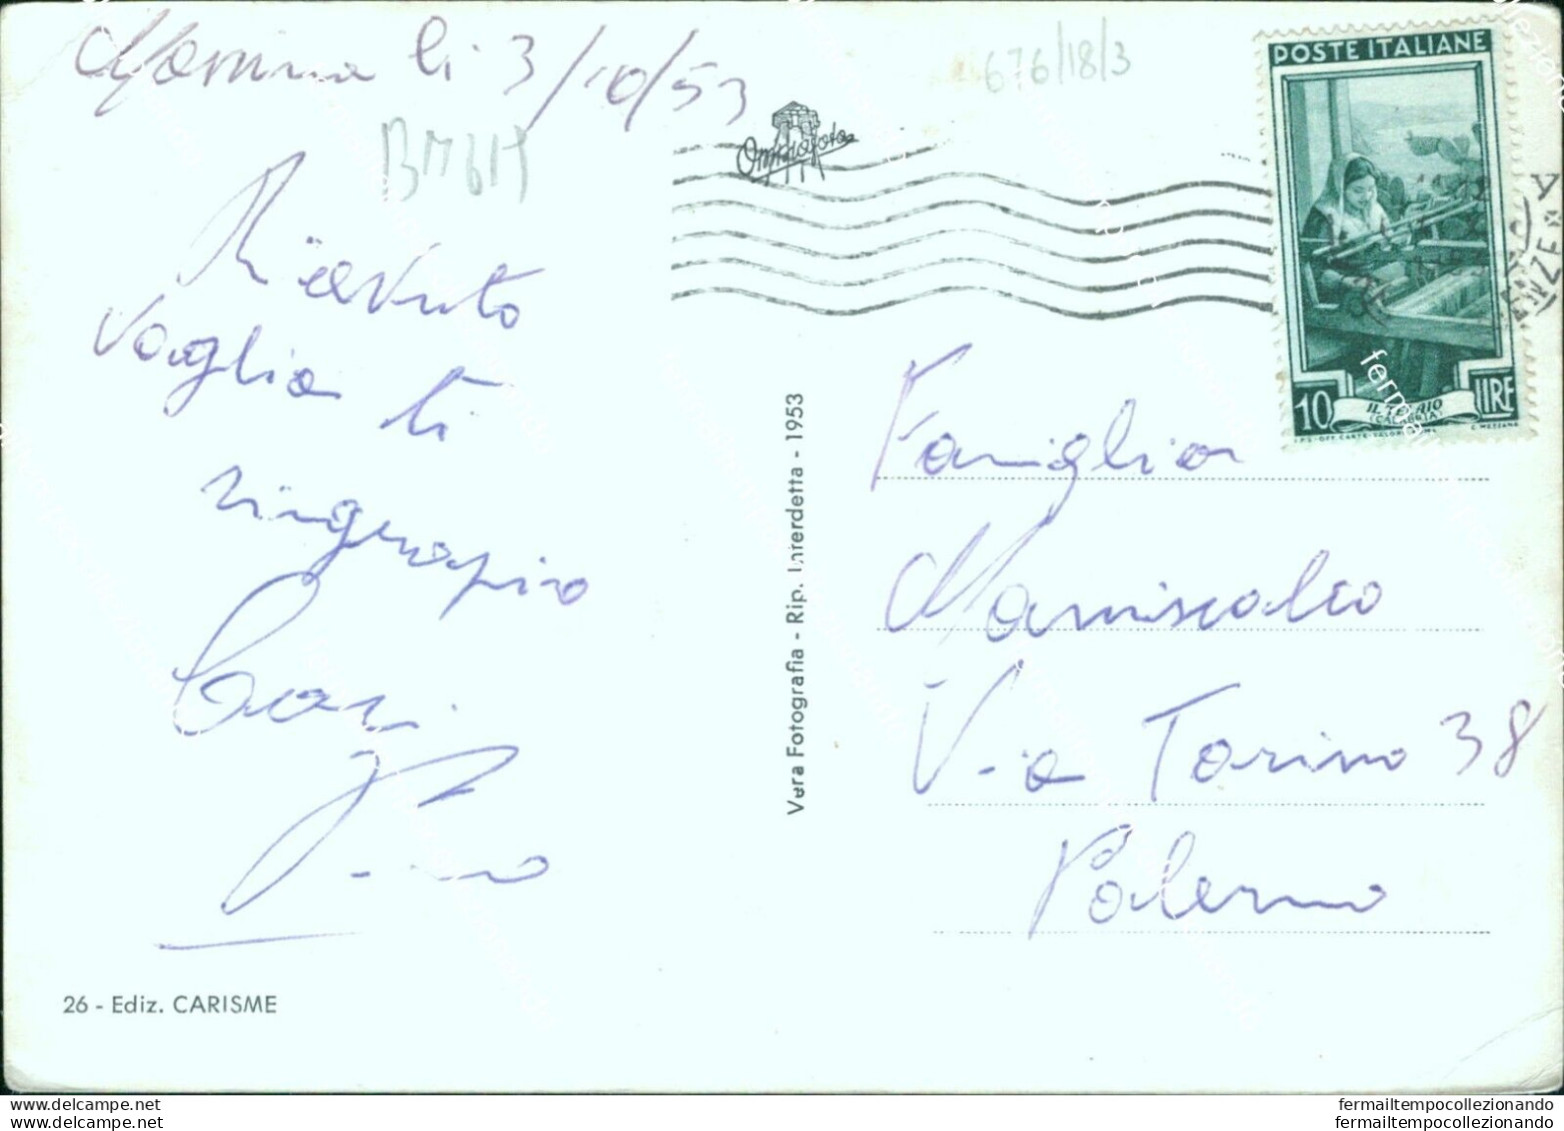 Marina li 3/10/53
676/18/3
Omniafoto
POSTE ITALIANE
10 LIRE
IL TELAIO
(CALABRIA)
Ricevuto
Vaglia ti
ringrazio
Famiglia
Maniscalco
Via Torino 38
Palermo
Vera Fotografia - Rip. Interdetta - 1953
26 - Ediz. CARISME
fermailtempocollezionando
fermailtempocollezionando
www.delcampe.net
fermailtempocollezionando
fermailtempocollezionando